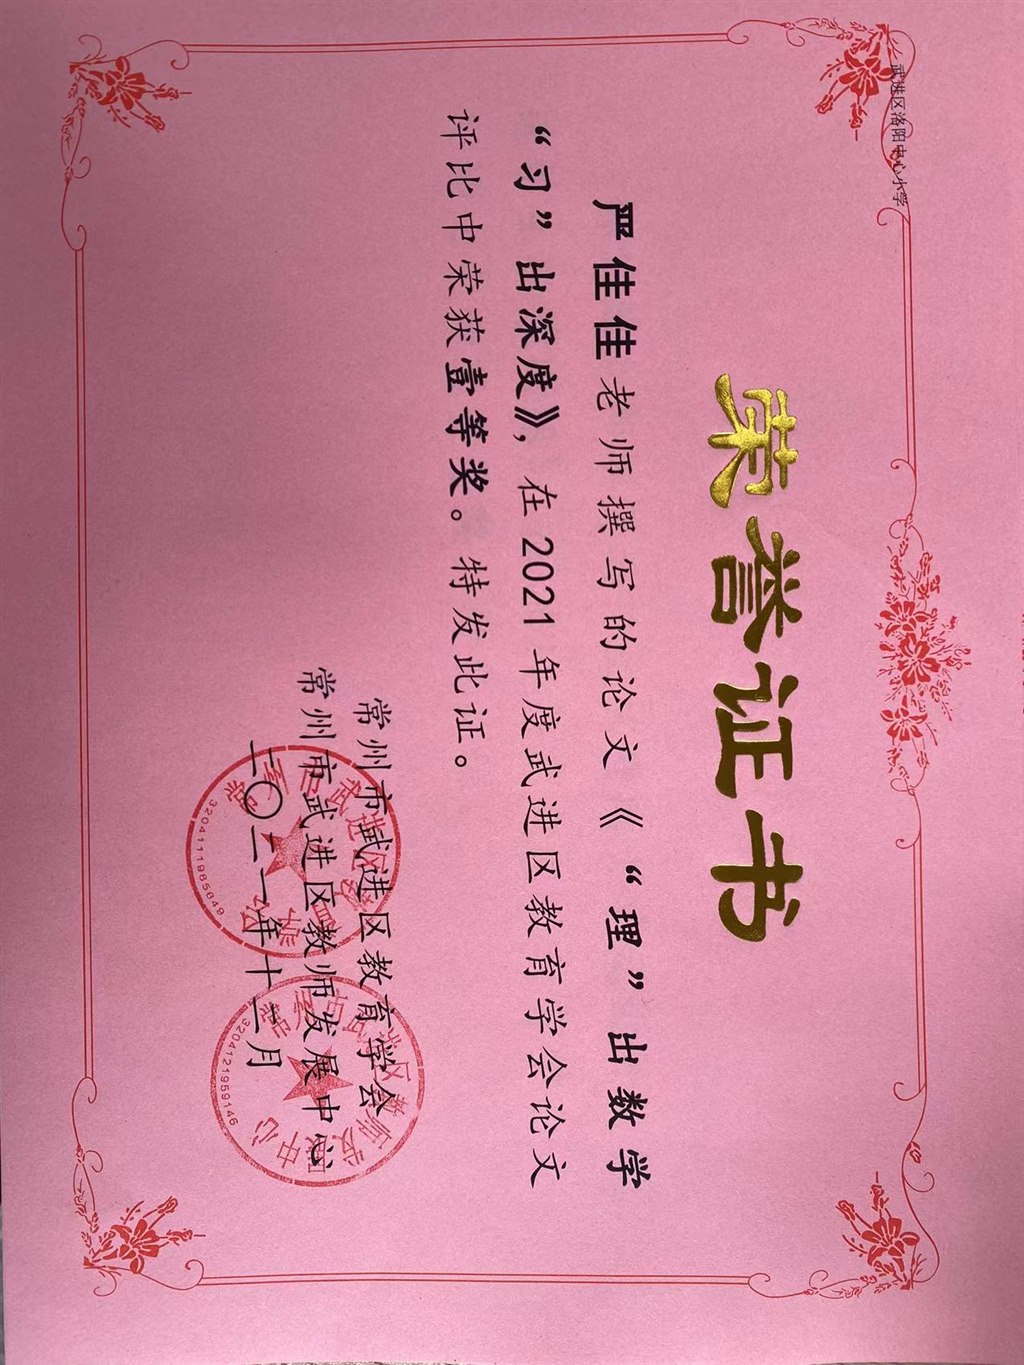 武进区洛阳中心小学
荣誉证书
严佳佳老师撰写的论文《“理”出数学
“习”出深度》，在2021年度武进区教育学会论文
评比中荣获壹等奖。特发此证。
常州市武进区教育学会
常州市武进区教师发展中心
二〇二一年十二月
3204111985649
3204121959146